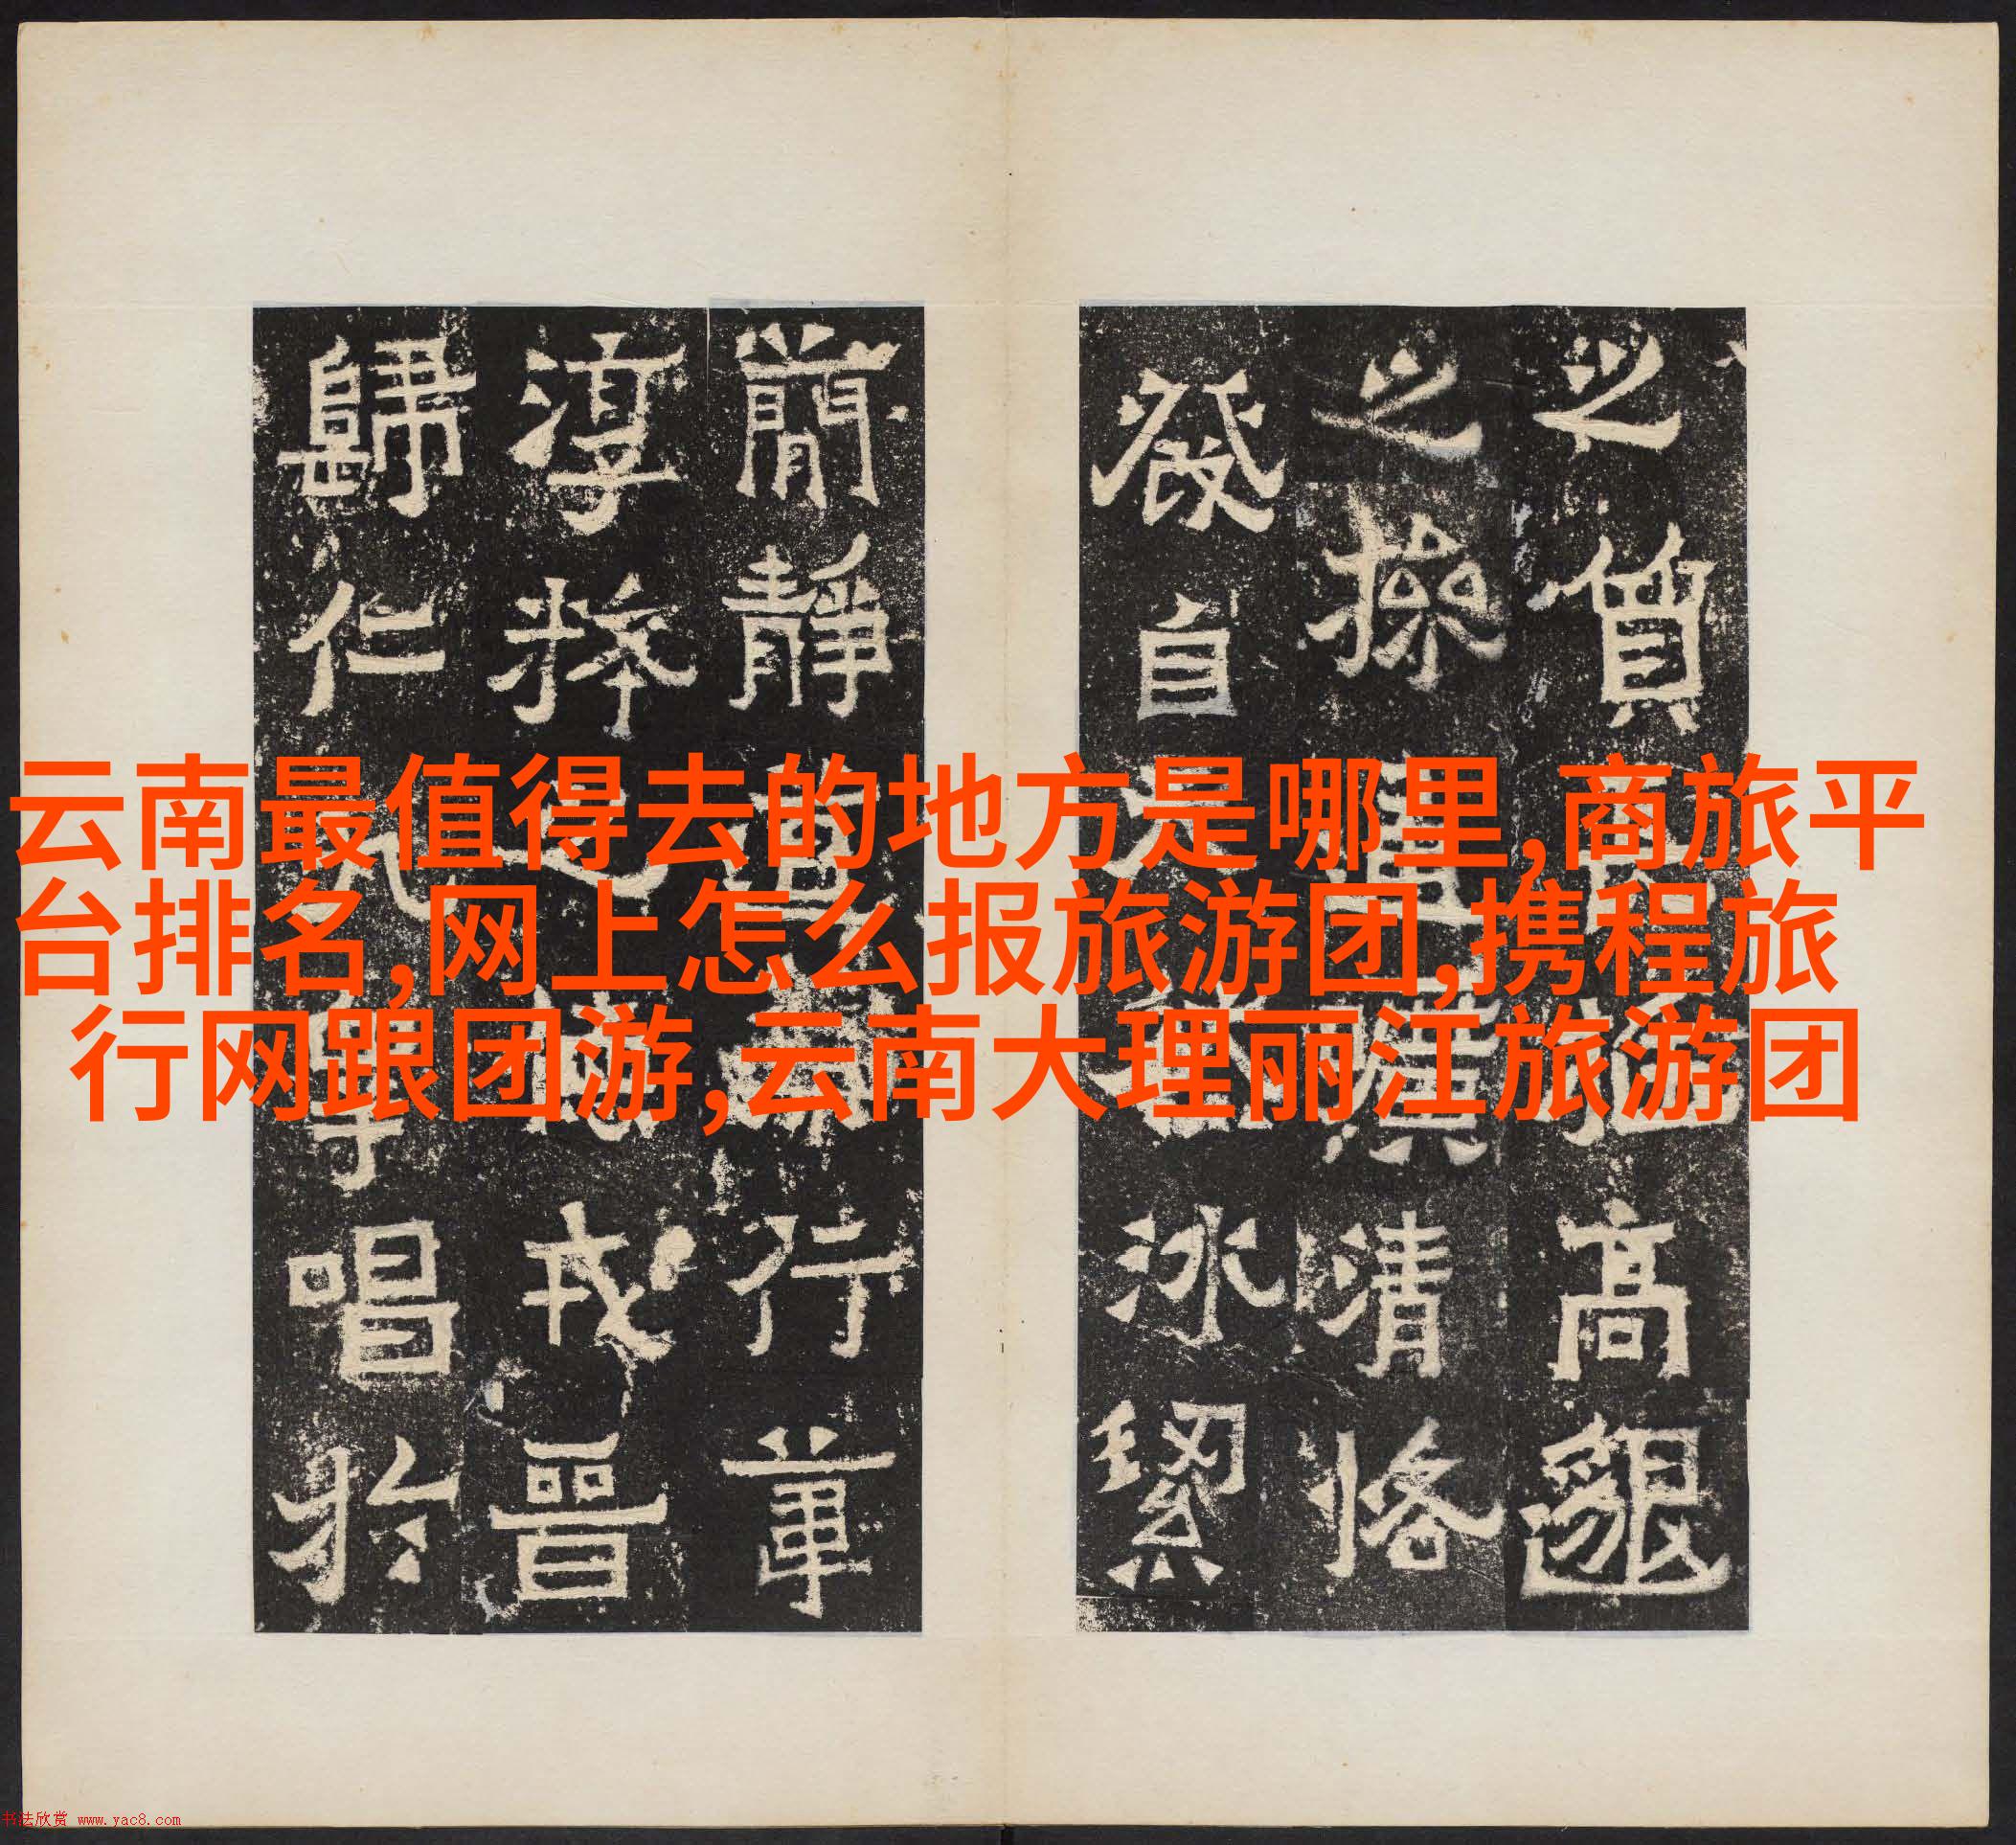 云南最值得去的地方是哪里,商旅平
台排名,网上怎么报旅游团,携程旅
行网跟团游,云南大理丽江旅游团
之質高邈
之操清恪
發自冰絜
簡靜行
淳粹之戎晉
歸仁唱於
书法欣赏 www.yac8.com